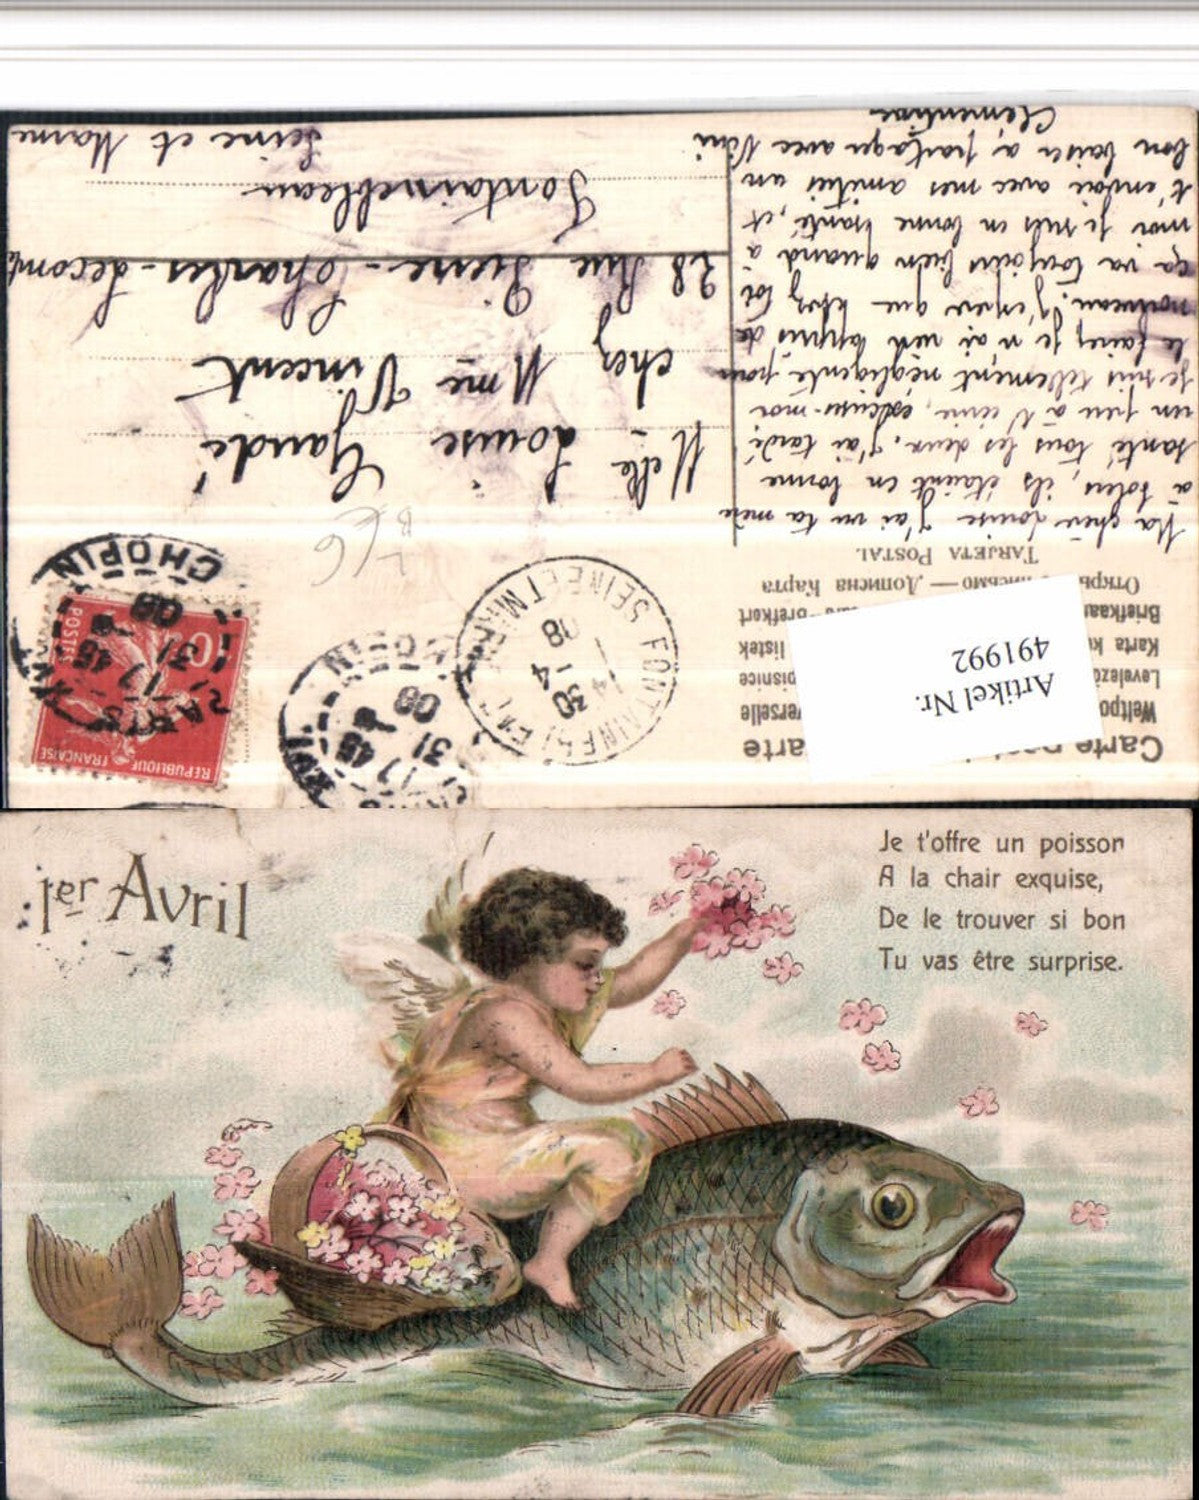 Carte
arte
Weltpo
erselle
Levelező
pisnice
Karta k
listek
Briefkaar
Brefkort
Откры
— Дописна Карта
TARJETA POSTAL
Artikel Nr.
491992
Ma chère Louise j'ai vu ta mère
à Soleu, ils étaient en bonne
santé tous les deux. J'ai tardé
un peu à t'écrire, excuse-moi
je suis tellement négligente pour
le faire, je n'ai rien appris de
nouveau. J'espère que chez toi
ça va toujours bien quand à
moi je suis en bonne santé, et
t'envoie avec mes amitiés un
bon baiser à partager avec Nini
Clémentine
Melle Louise Gaudé
chez Mme Vincent
28 Rue Pierre-Charles-Lecomte
Fontainebleau
Seine et Marne
FONTAINEBLEAU
SEINE ET MARNE
30 -4
08
PARIS
17 45
31
08
CHOPIN
RÉPUBLIQUE FRANÇAISE
10c
POSTES
1er Avril
Je t'offre un poisson
A la chair exquise,
De le trouver si bon
Tu vas être surprise.